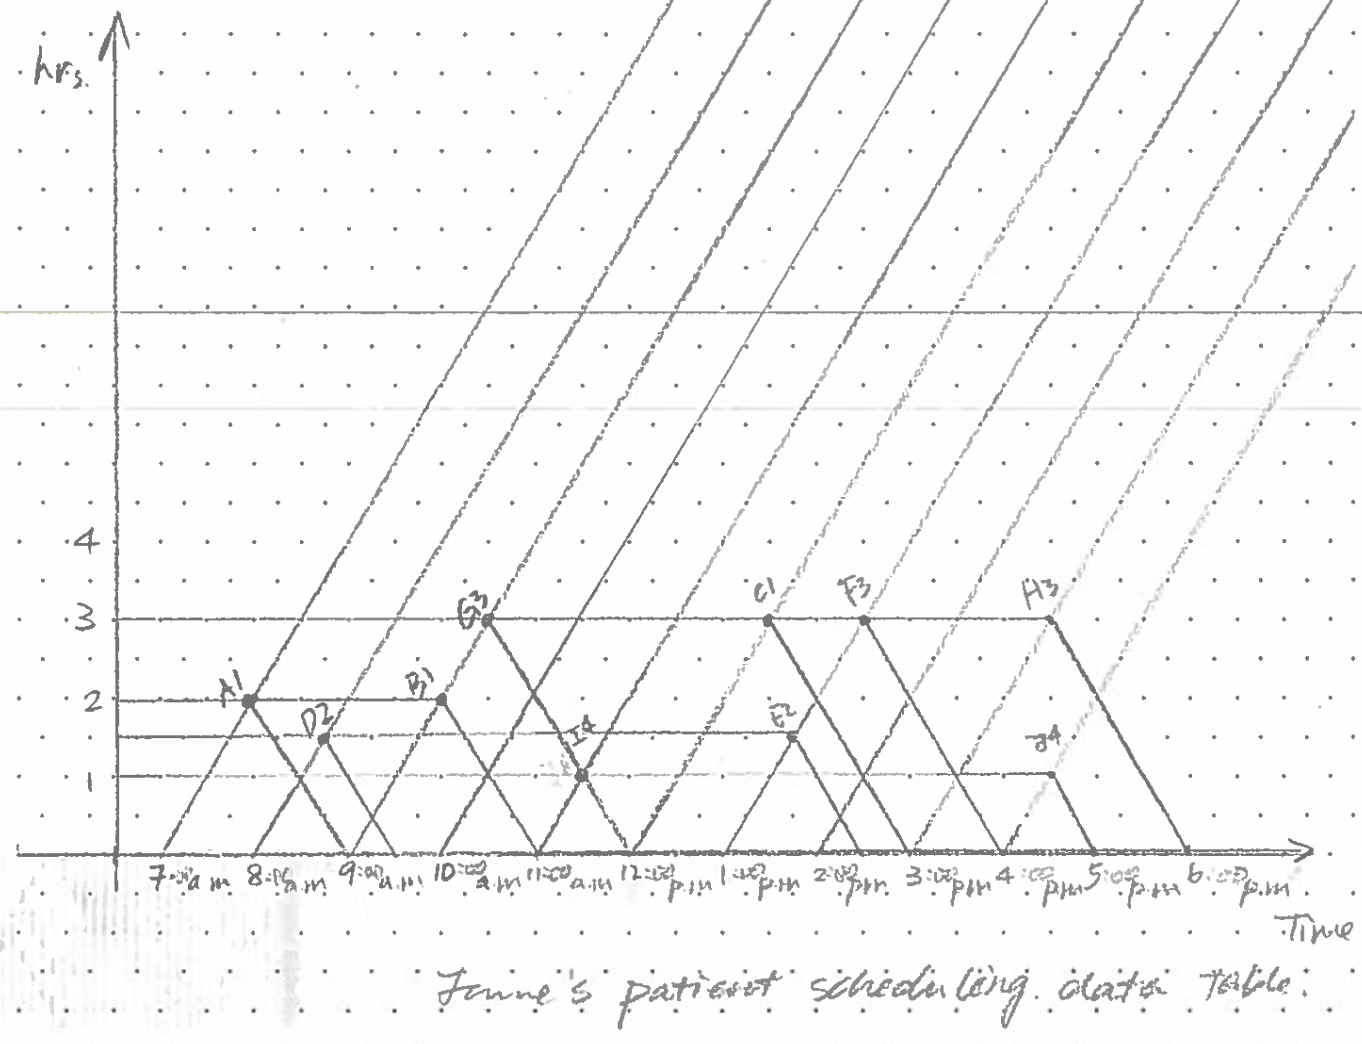 hrs.
4
3
2
1
A1
D2
B1
G3
I4
C1
F3
E2
H3
J4
7:00 a.m 8:00 a.m 9:00 a.m 10:00 a.m 11:00 a.m 12:00 p.m 1:00 p.m 2:00 p.m 3:00 p.m 4:00 p.m 5:00 p.m 6:00 p.m
Time
patient scheduling data table.